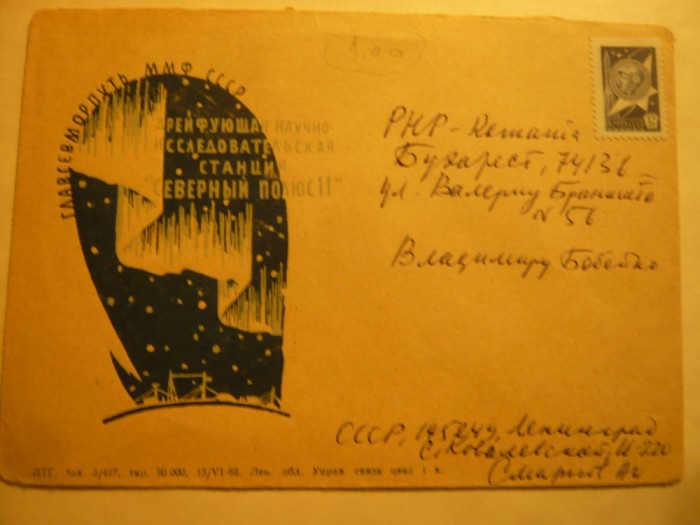 1.00
ГЛАВСЕВМОРПУТЬ ММФ СССР
ДРЕЙФУЮЩАЯ НАУЧНО-
ИССЛЕДОВАТЕЛЬСКАЯ
СТАНЦИЯ
"СЕВЕРНЫЙ ПОЛЮС 11"
РНР - Romania
Бухарест, 74136
ул. Валериу Браниште
№ 56
Владимиру
СССР, 195249, Ленинград
С. Ковалевской,
ЛТГ. зак. 3/427, тир. 50 000, 13/VI-62. Лен. обл. Управ. связи цена 1 к.